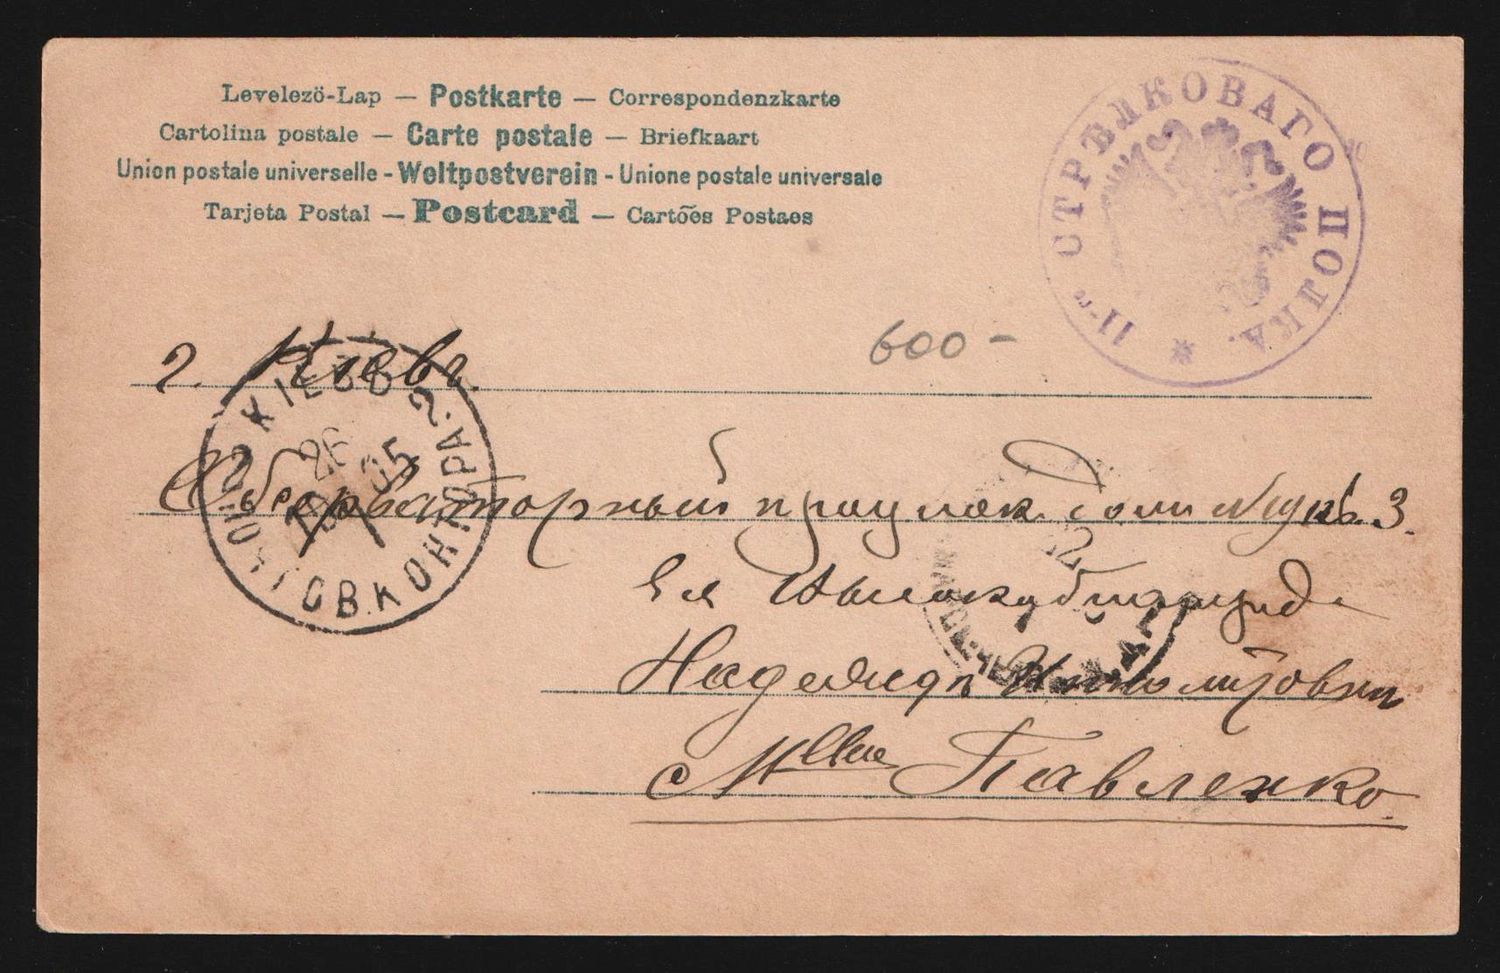 Levelezö-Lap — Postkarte — Correspondenzkarte
Cartolina postale — Carte postale — Briefkaart
Union postale universelle - Weltpostverein - Unione postale universale
Tarjeta Postal — Postcard — Cartões Postaes
11-го СТРѢЛКОВАГО ПОЛКА.
600 -
г. Кіевъ.
КІЕВЪ 2
26 05
ПОЧТОВ. КОНТОРА
Обсерваторный домъ №19 кв. 3.
Ея Высокоблагородію
Надежде Ипполитовне
Mlle Павленко